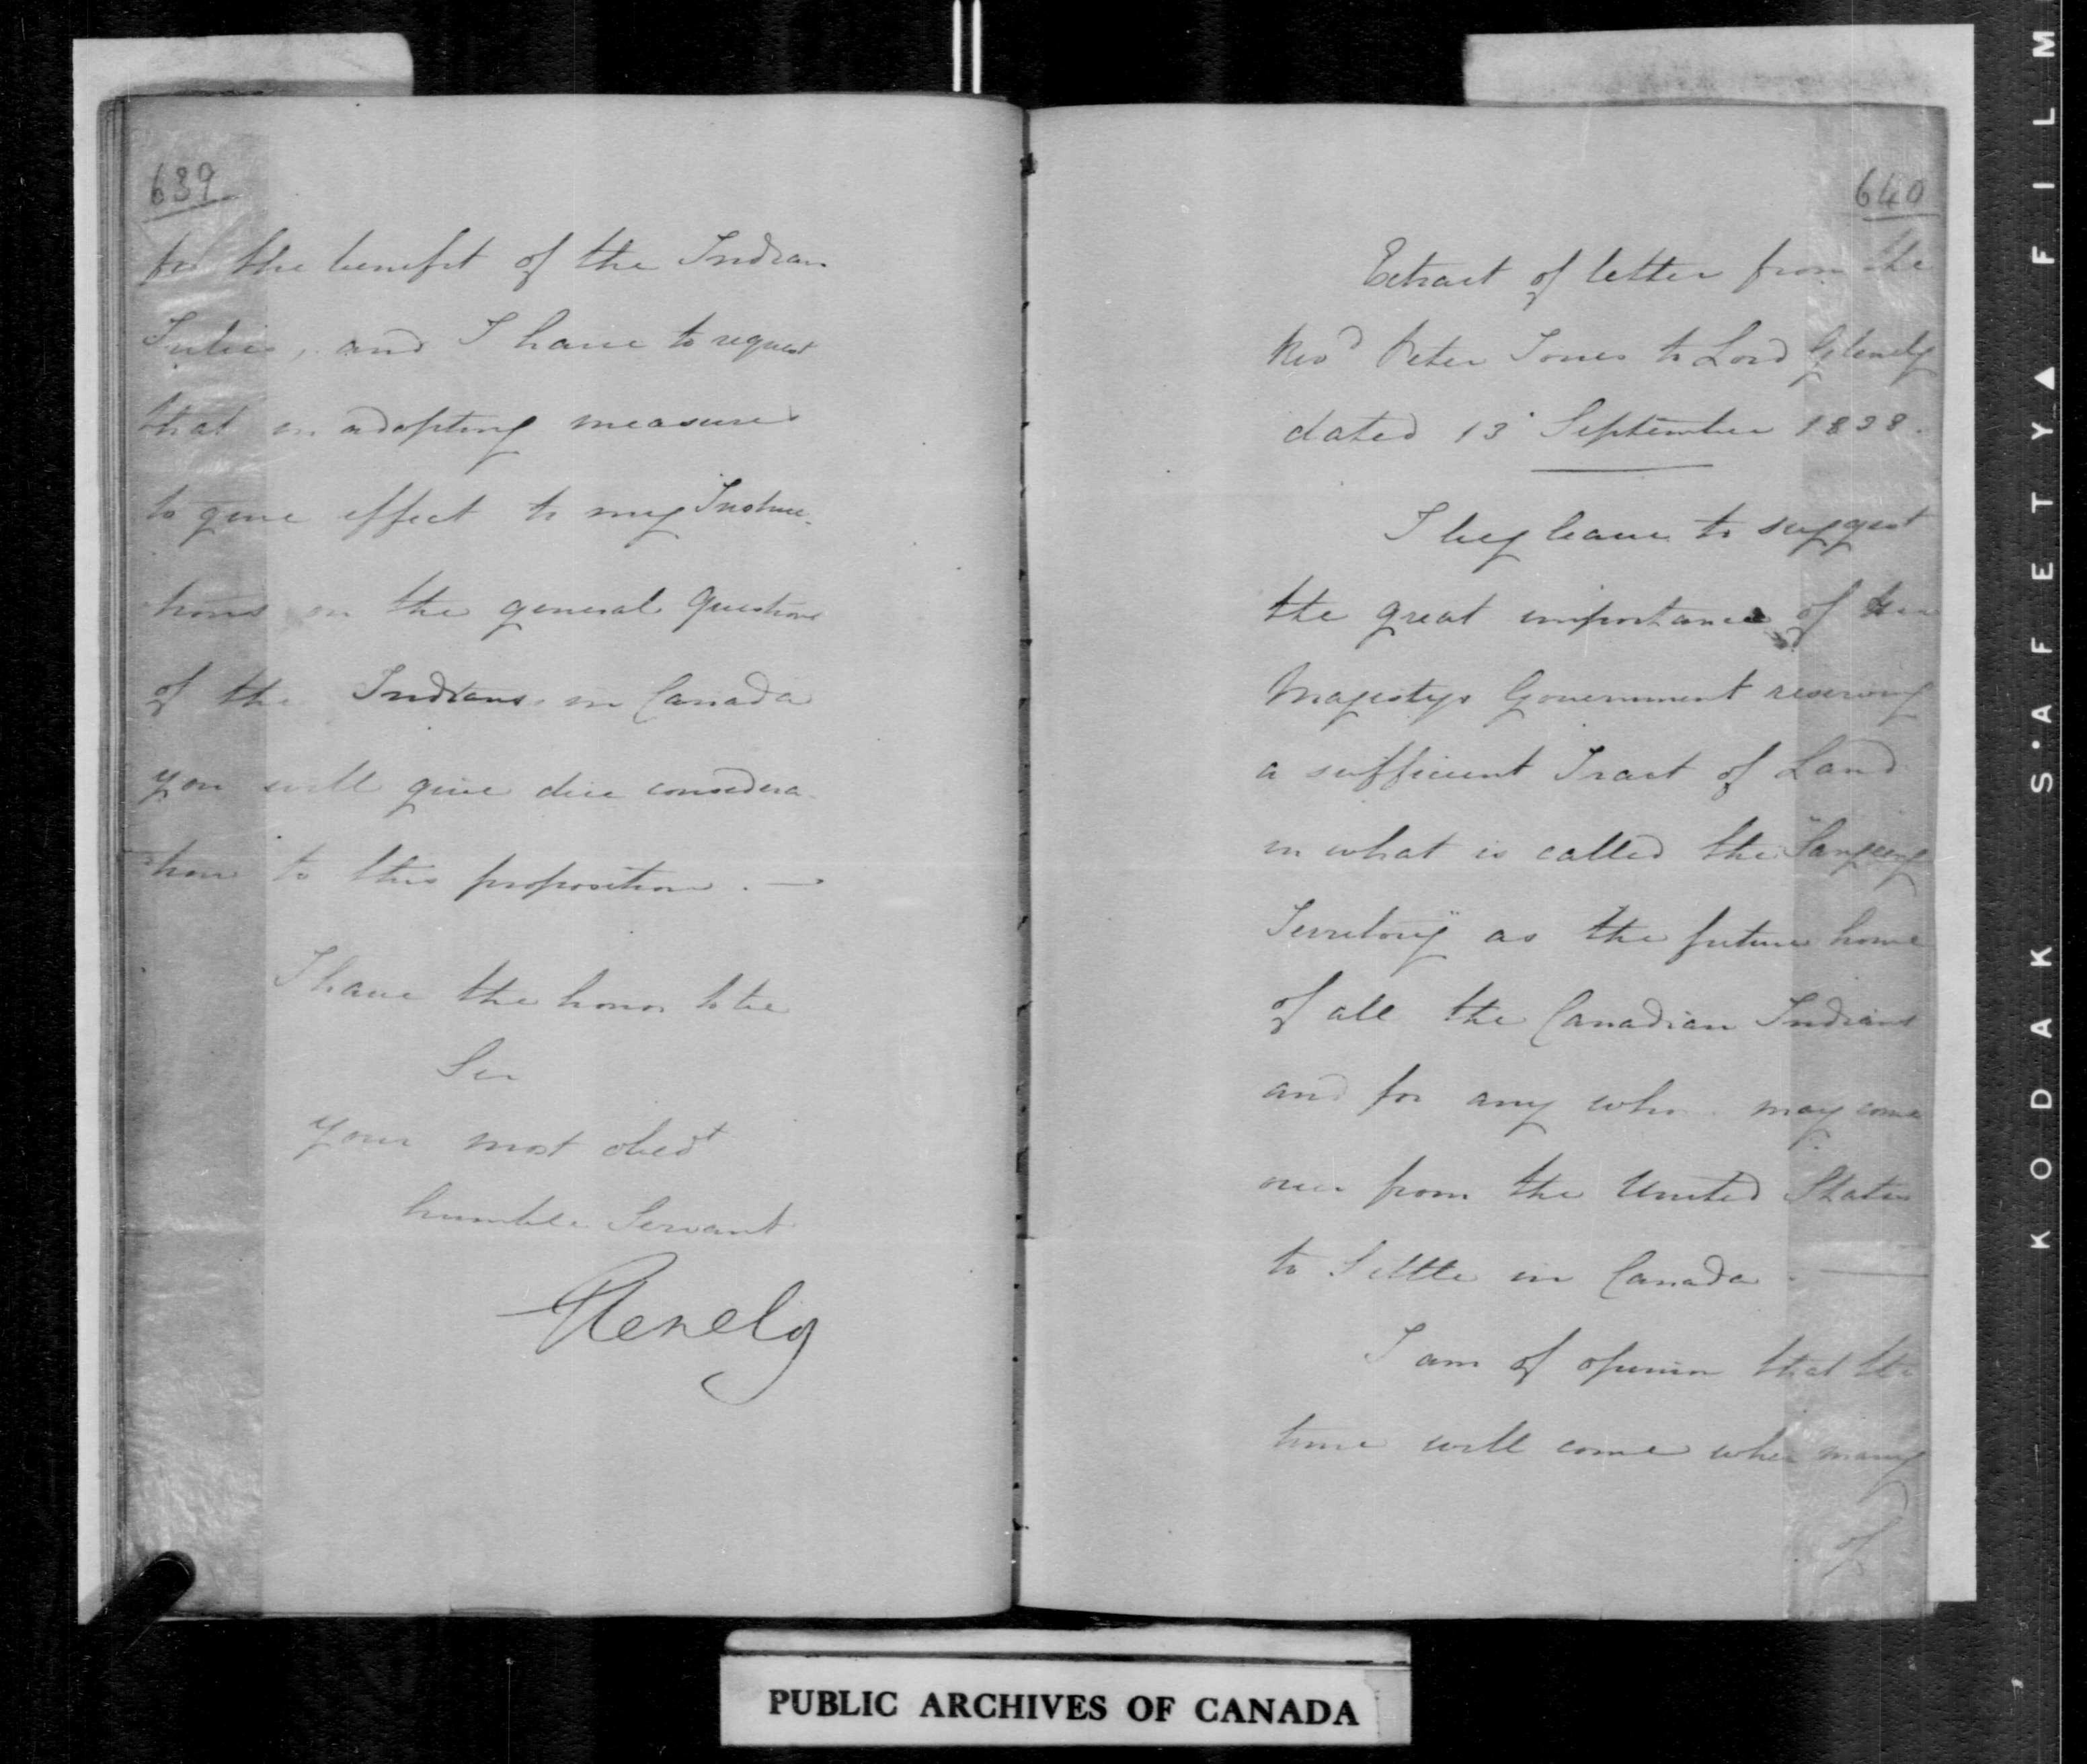 639
for the benefit of the Indian
Tribes, and I have to request
that in adopting measures
to give effect to my Instruc-
tions on the general Questions
of the Indians in Canada
you will give due considera-
tion to this proposition. —
I have the honor to be
Sir
your most obedt
humble Servant
Glenelg
640
Extract of letter from the
Revd Peter Jones to Lord Glenelg
dated 13 September 1838.
I beg leave to suggest
the great importance of her
Majestys Government reserving
a sufficient Tract of Land
in what is called the "Saugeeng
Territory" as the future home
of all the Canadian Indians
and for any who may come
over from the United States
to Settle in Canada. —
I am of opinion that the
time will come when many
of
PUBLIC ARCHIVES OF CANADA
KODAK S.AFETY▲FILM